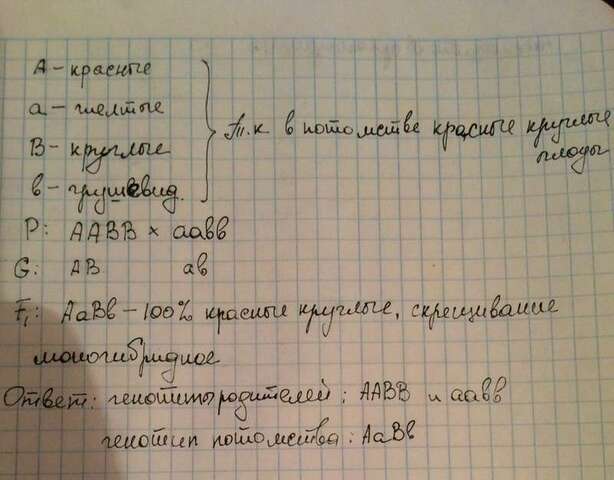 А – красные
а – желтые
В – круглые
в – грушевид.
Т.к в потомстве красные круглые
плоды
Р: ААВВ × аавв
G: АВ ав
F₁: АаВв – 100% красные круглые, скрещивание
моногибридное
Ответ: генотипы родителей: ААВВ и аавв
генотип потомства: АаВв